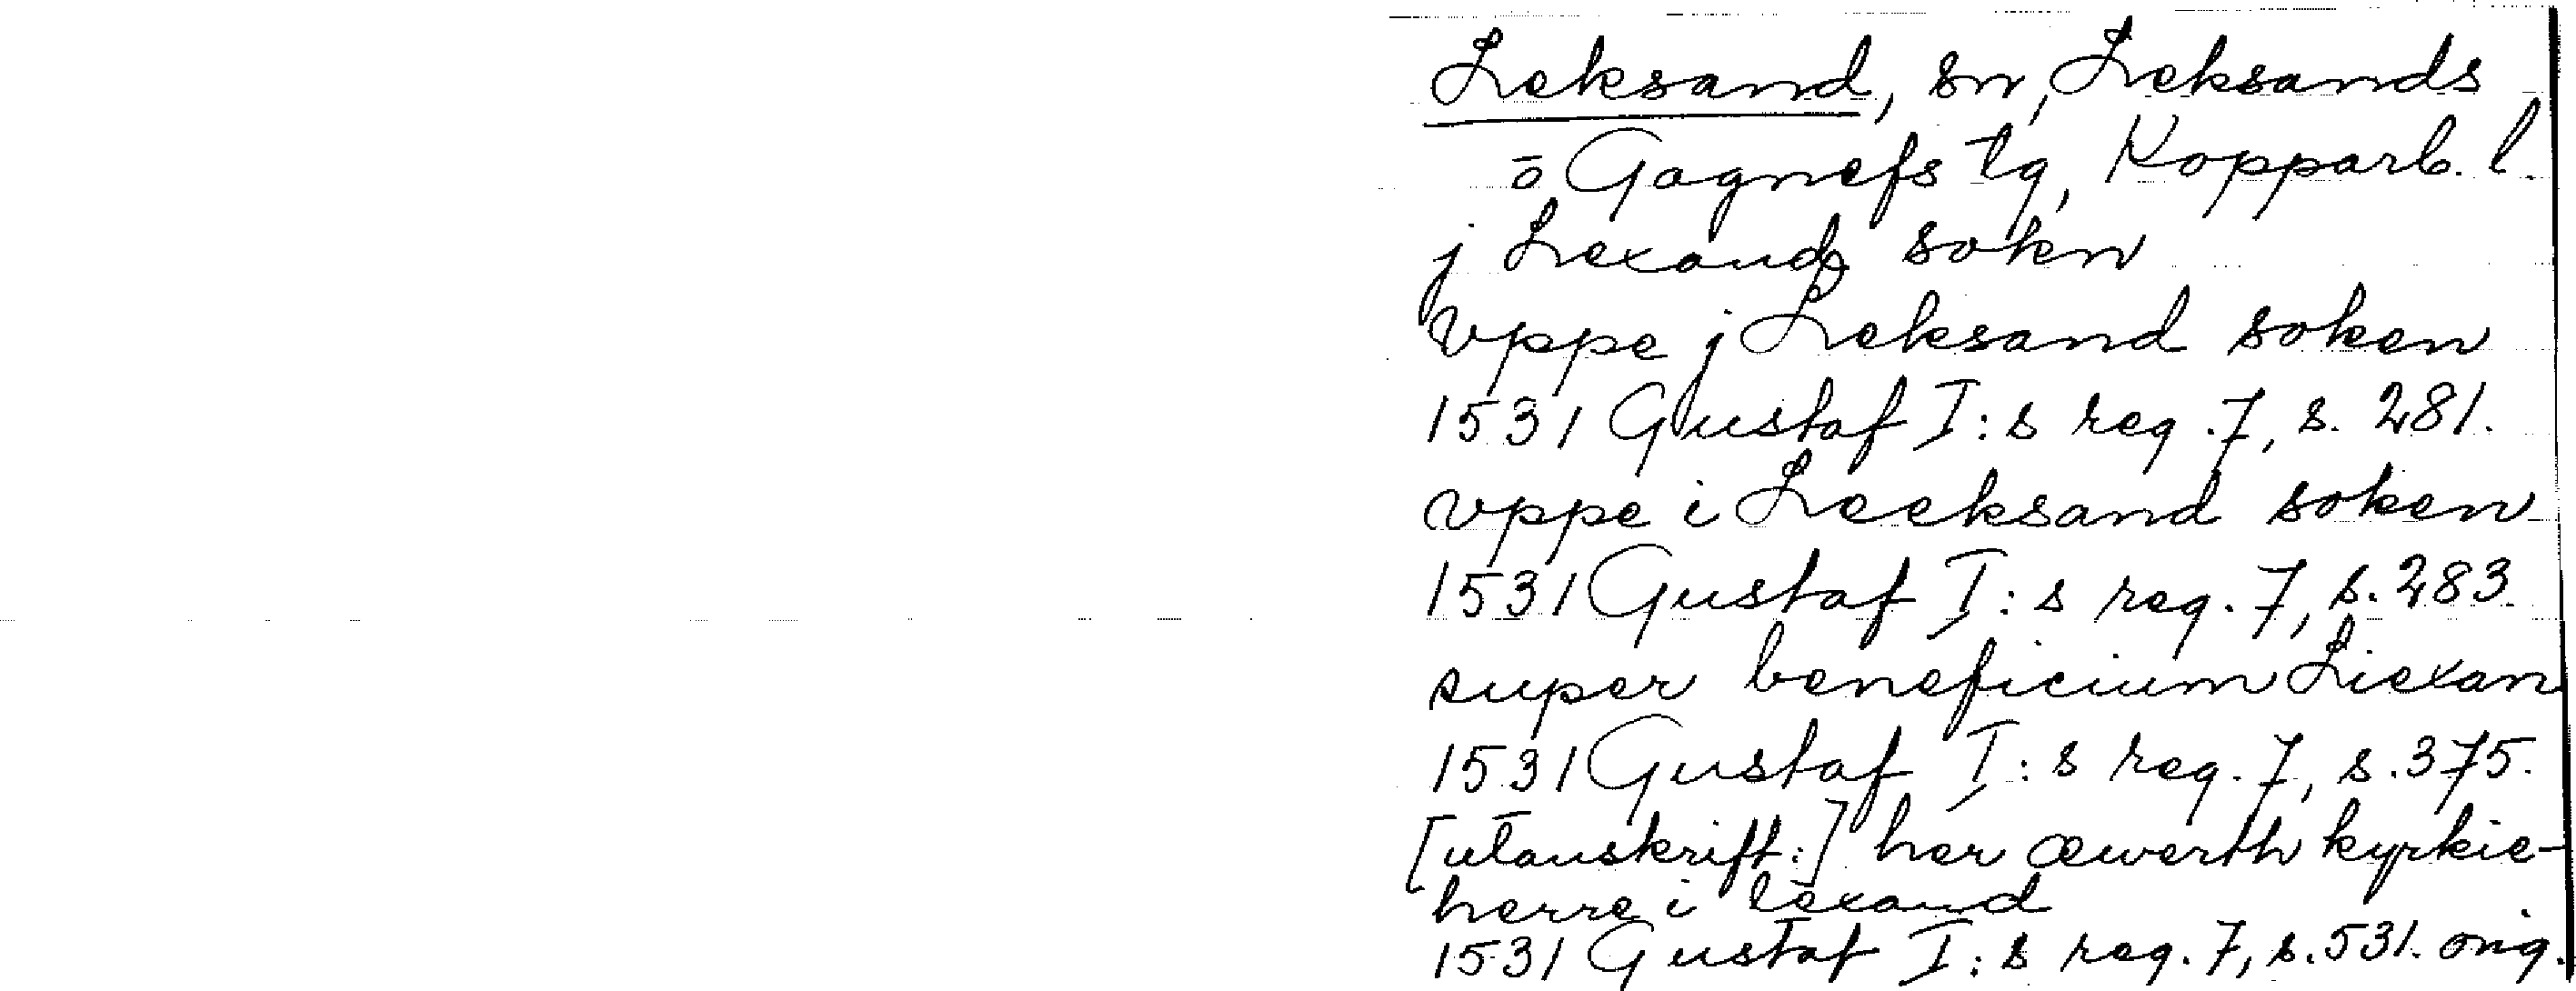 Leksand, sn, Leksands
o Gagnefs tg, Kopparb. l.
j Lexand sokn
vppe j Leksand soken
1531 Gustaf I:s reg. 7, s. 281.
vppe i Leeksand soken
1531 Gustaf I:s reg. 7, s. 283.
super beneficium Liexan
1531 Gustaf I:s reg. 7, s. 375.
[utanskrift:] her æwerth kyrkie-
herre i lexand
1531 Gustaf I:s reg. 7, s. 531. orig.